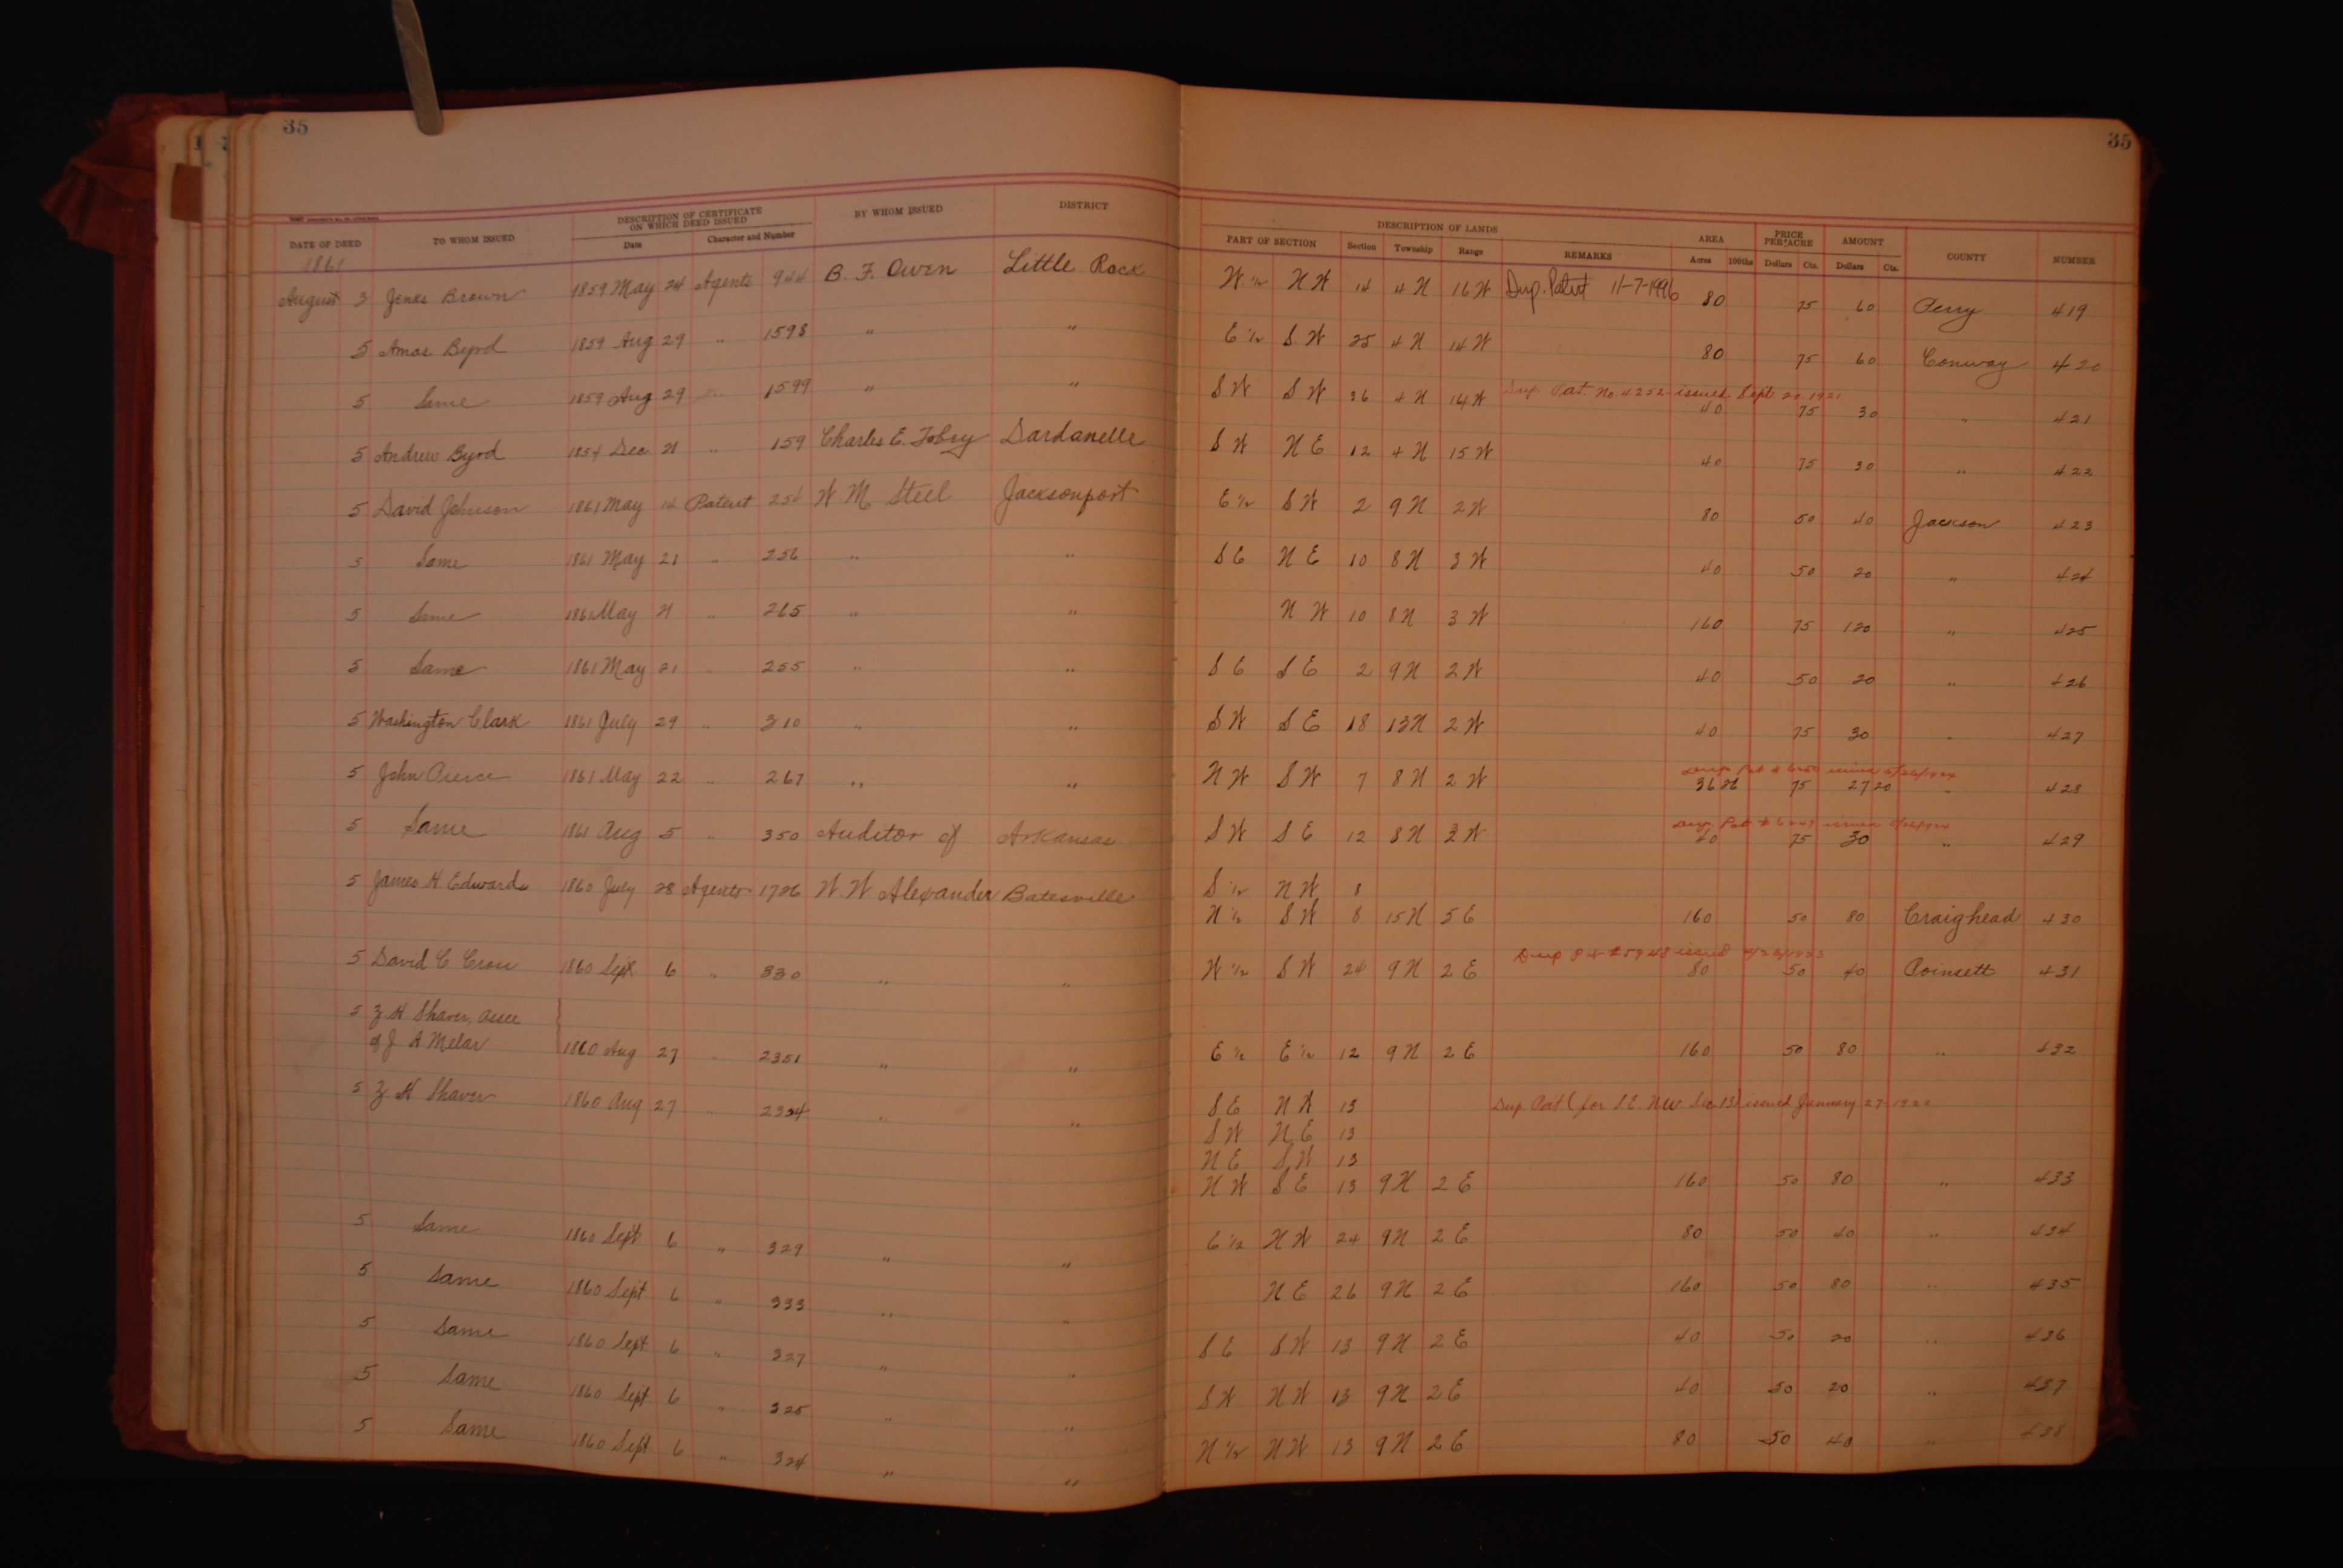 35
35
DATE OF DEED TO WHOM ISSUED DESCRIPTION OF CERTIFICATE ON WHICH DEED ISSUED Date Character and Number BY WHOM ISSUED DISTRICT PART OF SECTION DESCRIPTION OF LANDS Section Township Range REMARKS AREA Acres 100ths PRICE PER ACRE Dollars Cts. AMOUNT Dollars Cts. COUNTY NUMBER
1861
August 3 Jones Brown 1859 May 24 Agents 944 B. F. Owen Little Rock W ½ N W 14 4 N 16 W Dup. Patent 11-7-1996 80 75 60 Perry 419
5 Amos Byrd 1859 Aug 29 " 1598 " " E ½ S W 25 4 N 14 W 80 75 60 Conway 420
5 Same 1859 Aug 29 " 1599 " " S W S W 36 4 N 14 W Dup. Pat. No. 4252 issued Sept. 20 1921 40 75 30 " 421
5 Andrew Byrd 1854 Dec 21 " 159 Charles E. Tobey Dardanelle S W N E 12 4 N 15 W 40 75 30 " 422
5 David Johnson 1861 May 14 Patent 254 W M Steel Jacksonport E ½ S W 2 9 N 2 W 80 50 40 Jackson 423
5 Same 1861 May 21 " 256 " " S E N E 10 8 N 3 W 40 50 20 " 424
5 Same 1861 May 21 " 265 " " N W 10 8 N 3 W 160 75 120 " 425
5 Same 1861 May 21 " 255 " " S E S E 2 9 N 2 W 40 50 20 " 426
5 Washington Clark 1861 July 29 " 310 " " S W S E 18 13 N 2 W 40 75 30 " 427
5 John Pierce 1861 May 22 " 267 " " N W S W 7 8 N 2 W Dup Pat # issued 36 26 75 27 20 " 428
5 Same 1861 Aug 5 " 350 Auditor of Arkansas S W S E 12 8 N 3 W Dup Pat # issued 40 75 30 " 429
5 James H Edwards 1860 July 28 Agents 1726 W. W Alexander Batesville S ½ N W 8
N ½ S W 8 15 N 5 E 160 50 80 Craighead 430
5 David C Crow 1860 Sept 6 " 330 " " W ½ S W 24 9 N 2 E Dup Pat issued 80 50 40 Poinsett 431
5 Z H Shaver, assee
of J A Melar 1860 Aug 27 " 2351 " " E ½ E ½ 12 9 N 2 E 160 50 80 " 432
5 Z. H Shaver 1860 Aug 27 " 2354 " " S E N W 13 Dup Pat (for S E N W Sec 13) issued January 27-1922
S W N E 13
N E S W 13
N W S E 13 9 N 2 E 160 50 80 " 433
5 Same 1860 Sept 6 " 329 " " E ½ N W 24 9 N 2 E 80 50 40 " 434
5 Same 1860 Sept 6 " 333 " " N E 26 9 N 2 E 160 50 80 " 435
5 Same 1860 Sept 6 " 327 " " S E S W 13 9 N 2 E 40 50 20 " 436
5 Same 1860 Sept 6 " 325 " " S W N W 13 9 N 2 E 40 50 20 " 437
5 Same 1860 Sept 6 " 324 " " N ½ N W 13 9 N 2 E 80 50 40 " 438